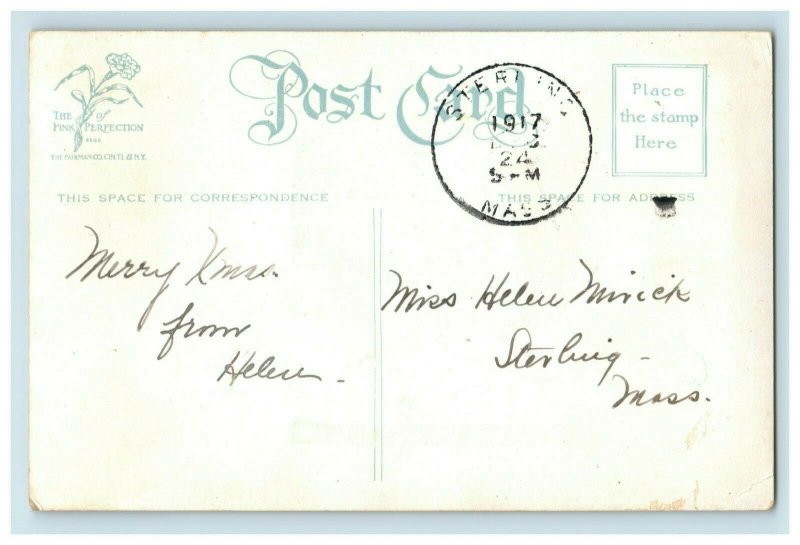 Post Card
THE of
PINK PERFECTION
THE FAIRMAN CO. CIN'TI. & N.Y.
STERLING
1917
24
5-M
MASS
Place
the stamp
Here
THIS SPACE FOR CORRESPONDENCE
THIS SPACE FOR ADDRESS
Merry Xmas.
from
Helen.
Miss Helen Mirick
Sterling -
Mass.